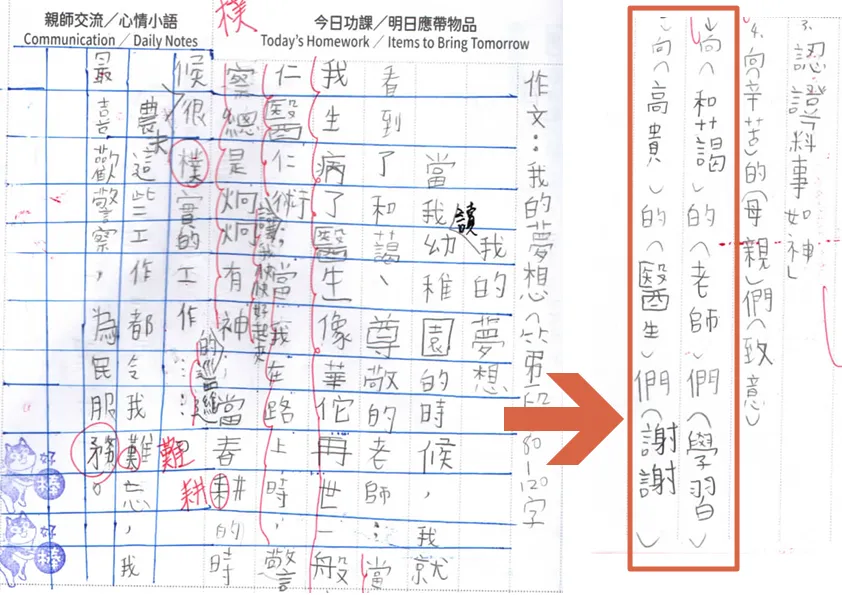 親師交流／心情小語
Communication／Daily Notes
樸
今日功課／明日應帶物品
Today's Homework／Items to Bring Tomorrow
我的夢想
讀
當我幼稚園的時候，我就
看到了和藹、尊敬的老師……當
我生病了醫生像華佗再世一般
仁醫仁術，當我在路上時，警
我快快好起來
察總是炯炯有神；當春耕的時
耕
的巡邏
候很樸實的工作……
難
農夫這些工作都令我難忘，我
最喜歡警察，為民服務。
3. 認證「料事如神」
4. 向（辛苦）的（母親）們（致意）
向（和藹）的（老師）們（學習）
向（高貴）的（醫生）們（謝謝）